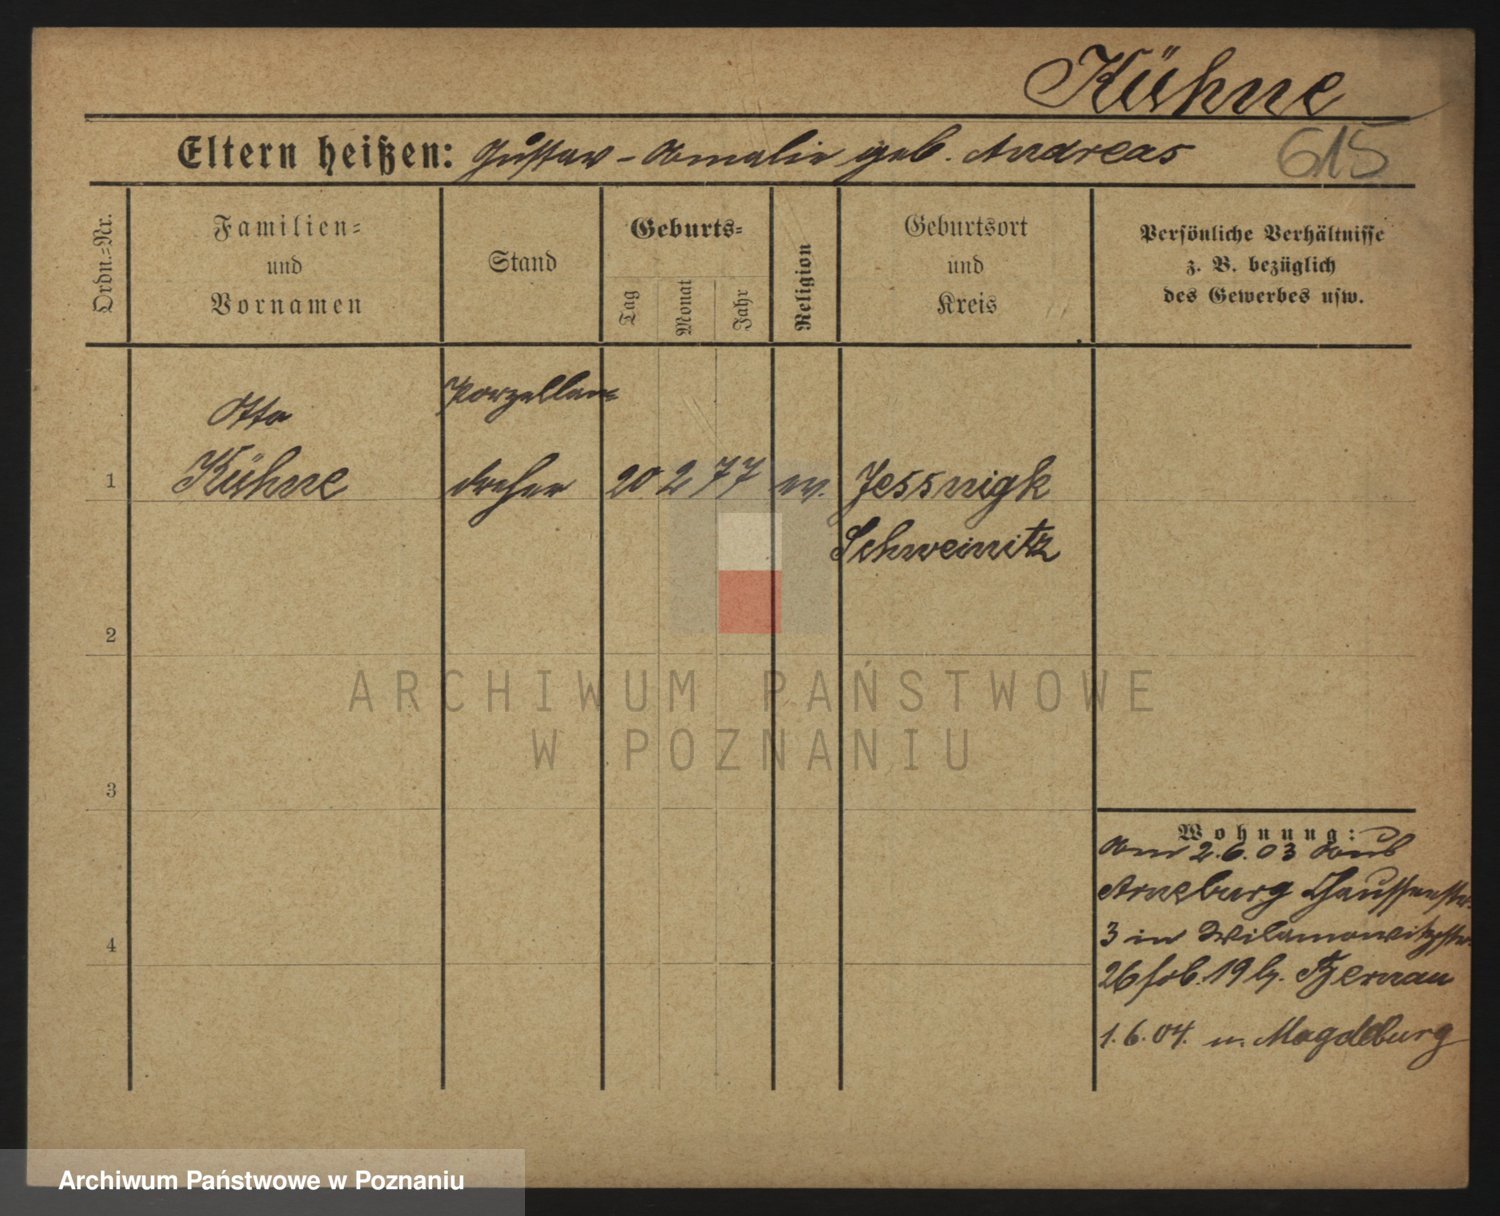 Kühne
Eltern heißen: Gustav - Amalie geb. Andreas
615
Ordn.-Nr.
Familien-
und
Vornamen
Stand
Geburts-
Tag
Monat
Jahr
Religion
Geburtsort
und
Kreis
Persönliche Verhältnisse
z. B. bezüglich
des Gewerbes usw.
Otto
Porzellan-
1 Kühne dreher 20 2 77 ev. Jessnigk
Schweinitz
2
3
4
ARCHIWUM PAŃSTWOWE
W POZNANIU
Wohnung:
Am 2.6.03 aus
Arneburg Chausseestr.
3 in Wilamowitzstr.
26 bei Bernau
1.6.04. n. Magdeburg
Archiwum Państwowe w Poznaniu